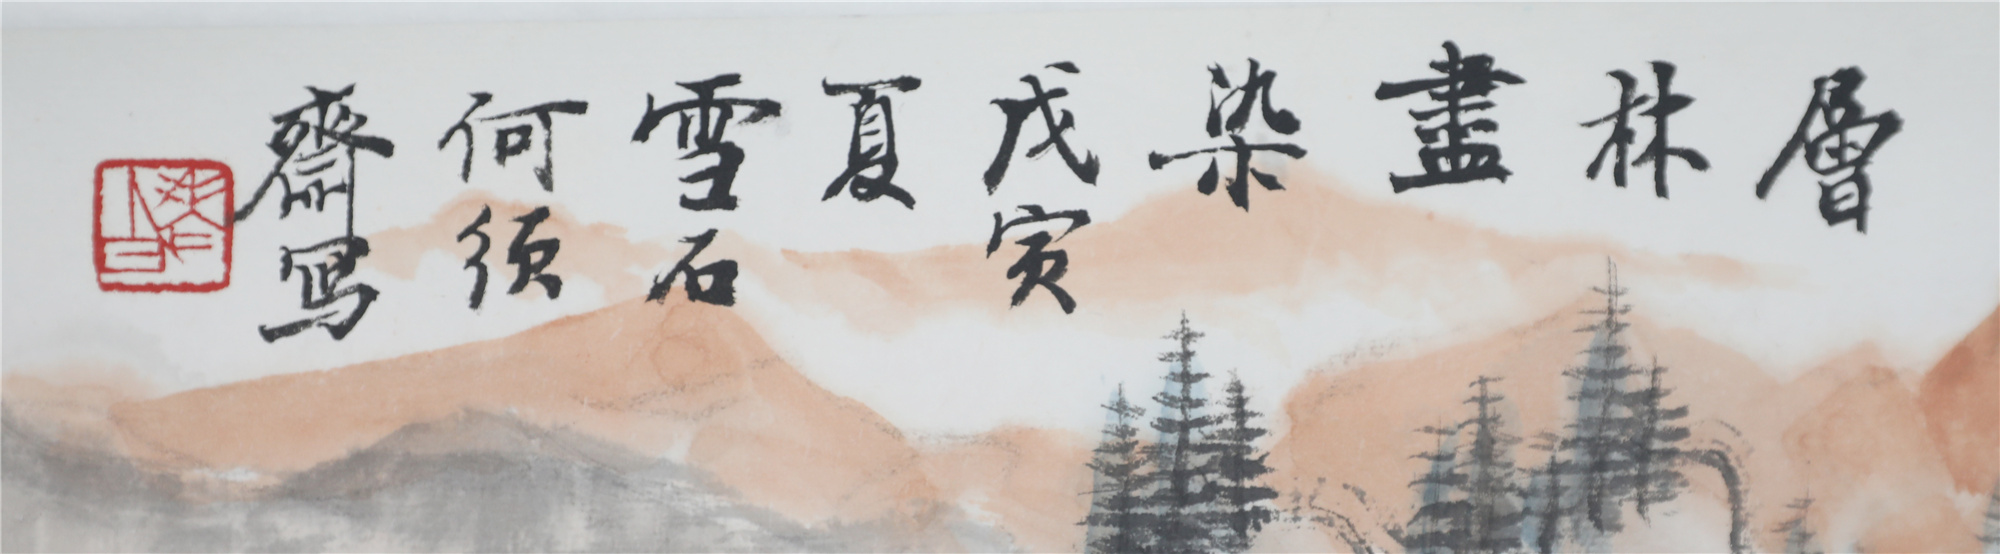 層
林
盡
染
戊寅
夏
雪石
何須
齋寫